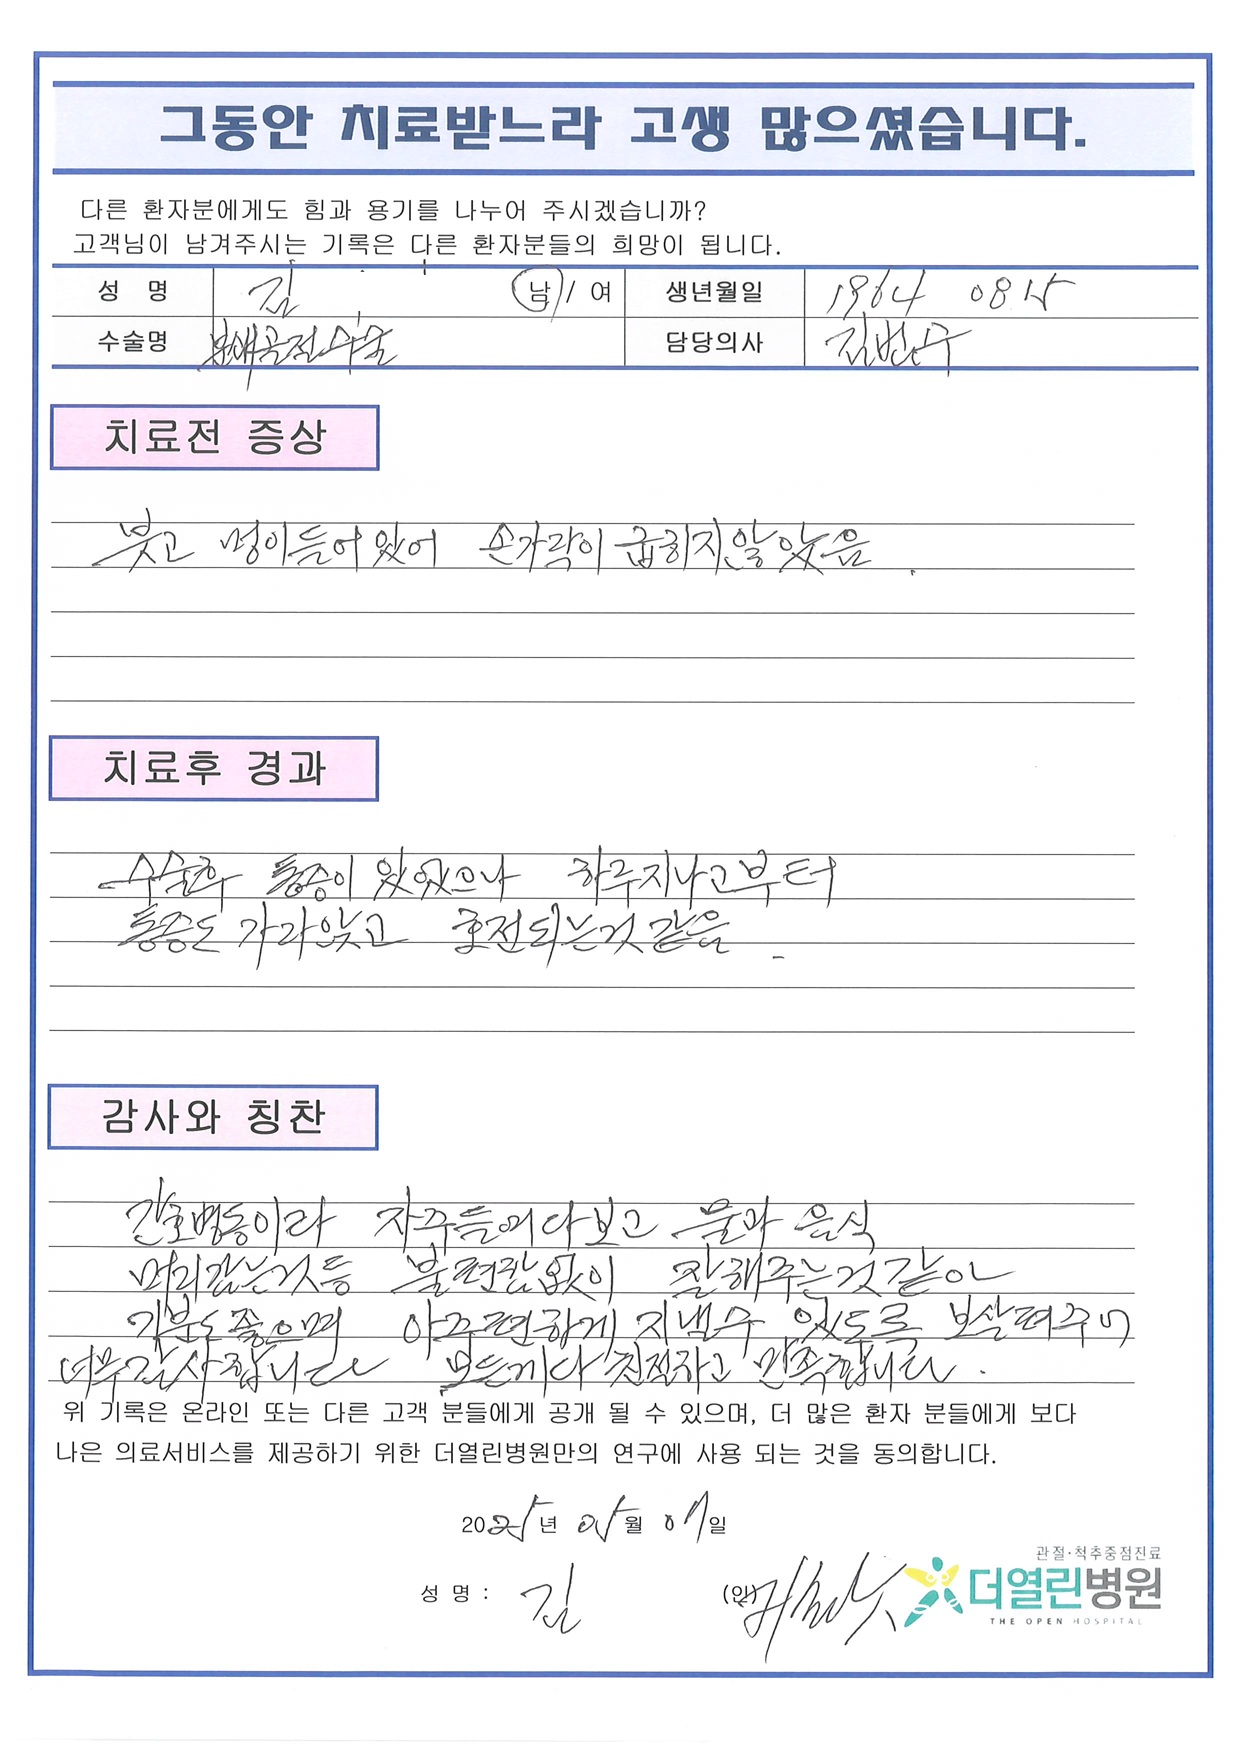 그동안 치료받느라 고생 많으셨습니다.
다른 환자분에게도 힘과 용기를 나누어 주시겠습니까?
고객님이 남겨주시는 기록은 다른 환자분들의 희망이 됩니다.
성 명 김 남 / 여 생년월일 1964 08 15
수술명 골절수술 담당의사
치료전 증상
붓고 멍이들어있어 손가락이 굽히지않았음.
치료후 경과
수술후 통증이 있었으나 하루지나고부터
통증도 가라앉고 호전되는것 같음.
감사와 칭찬
간호병동이라 자주들여다보고 물과 음식
머리감는것등 불편함없이 잘해주는것 같아
기분도좋으며 아주편하게 지낼수 있도록 보살펴주니
너무감사합니다 모든게다 친절하고 만족합니다.
위 기록은 온라인 또는 다른 고객 분들에게 공개 될 수 있으며, 더 많은 환자 분들에게 보다
나은 의료서비스를 제공하기 위한 더열린병원만의 연구에 사용 되는 것을 동의합니다.
2025년 05월 07일
성 명 : 김 (인)
관절·척추중점진료
더열린병원
THE OPEN HOSPITAL